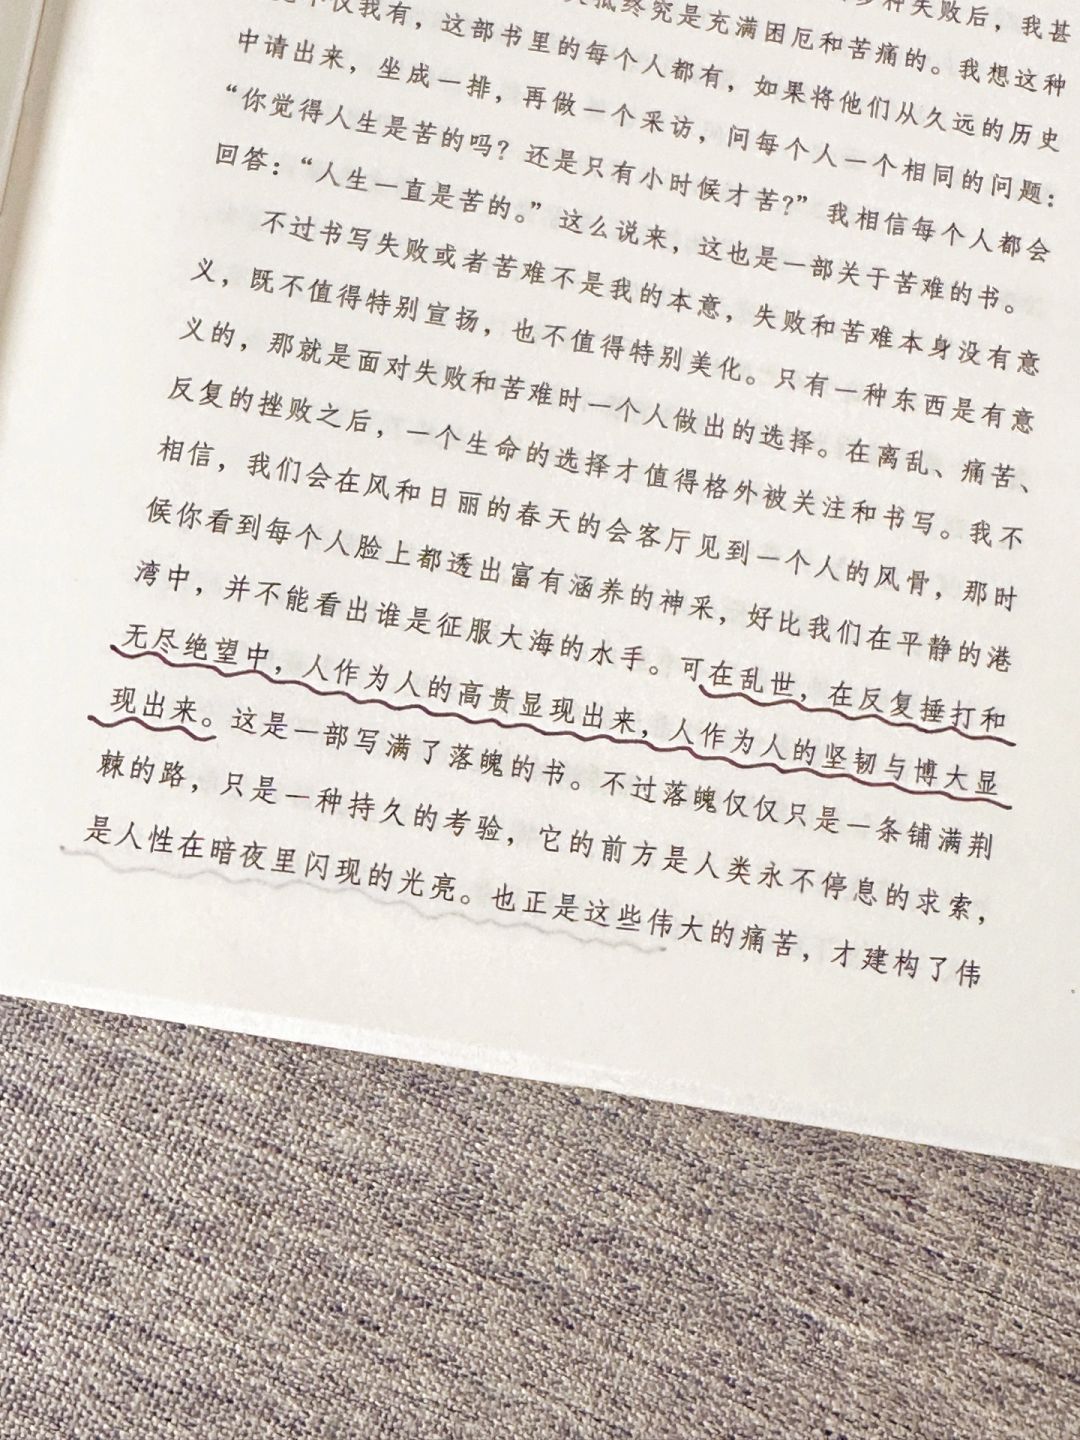 种失败后，我甚
究是充满困厄和苦痛的。我想这种
仅我有，这部书里的每个人都有，如果将他们从久远的历史
中请出来，坐成一排，再做一个采访，问每个人一个相同的问题：
“你觉得人生是苦的吗？还是只有小时候才苦？”我相信每个人都会
回答：“人生一直是苦的。”这么说来，这也是一部关于苦难的书。
不过书写失败或者苦难不是我的本意，失败和苦难本身没有意
义，既不值得特别宣扬，也不值得特别美化。只有一种东西是有意
义的，那就是面对失败和苦难时一个人做出的选择。在离乱、痛苦、
反复的挫败之后，一个生命的选择才值得格外被关注和书写。我不
相信，我们会在风和日丽的春天的会客厅见到一个人的风骨，那时
候你看到每个人脸上都透出富有涵养的神采，好比我们在平静的港
湾中，并不能看出谁是征服大海的水手。可在乱世，在反复捶打和
无尽绝望中，人作为人的高贵显现出来，人作为人的坚韧与博大显
现出来。这是一部写满了落魄的书。不过落魄仅仅只是一条铺满荆
棘的路，只是一种持久的考验，它的前方是人类永不停息的求索，
是人性在暗夜里闪现的光亮。也正是这些伟大的痛苦，才建构了伟